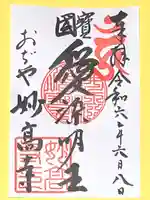 奉拝 令和六年六月八日
國寶
愛染明王
おぢや 妙高寺